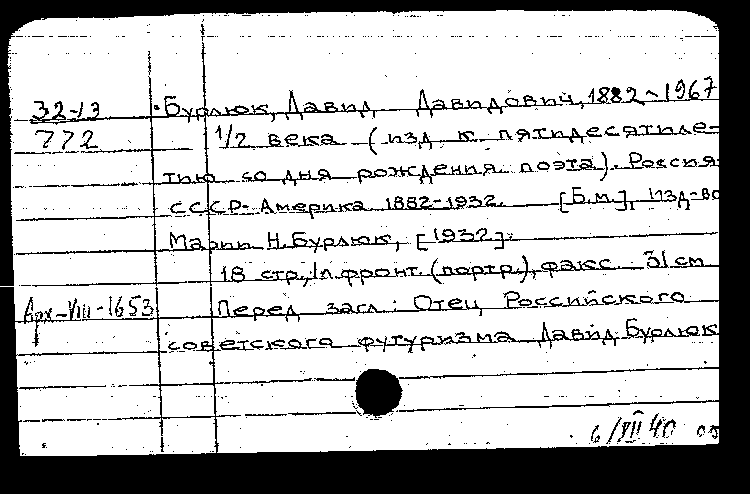 32-13
772
Бурлюк, Давид Давидович, 1882-1967
1/2 века (изд. к пятидесятиле-
тию со дня рождения поэта). Россия-
СССР-Америка 1882-1932. [Б.м.], Изд-во
Марии Н. Бурлюк, [1932].
18 стр., 1 л. фронт. (портр.), факс 31 см
Арх-VIII-1653
Перед загл.: Отец Российского
советского футуризма Давид Бурлюк
6/VII 40